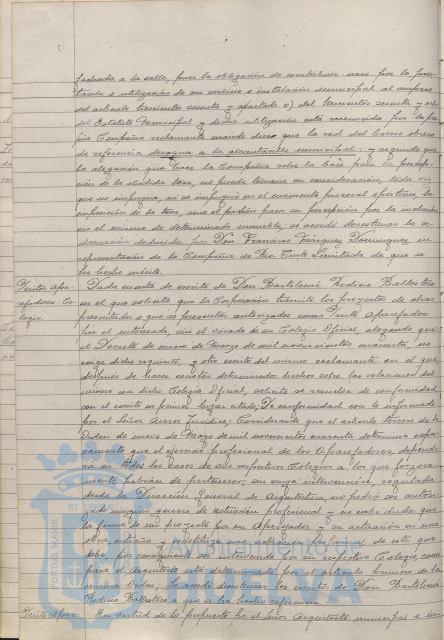 fachada a la calle, pues la obligación de contribuir nace por la pres-
tación o utilización de un servicio o instalación municipal al amparo
del artículo trescientos sesenta y apartado o) del trescientos sesenta y ocho
del Estatuto Municipal y dicha utilización está reconocida por la pro-
pia Compañía reclamante cuando dice que la red del barrio obrero
de referencia desagua a la alcantarilla municipal; y segundo que
la alegación que hace la Compañía sobre la base para la percep-
ción de la aludida tasa, no puede tomarse en consideración, toda vez
que no impugna, ni se impugnó en el momento procesal oportuno, la
imposición de la tasa, sino el padrón para su percepción por la inclusión
en el mismo de determinado inmueble, se acordó desestimar la re-
clamación deducida por Don Francisco Vázquez Domínguez, en
representación de la Compañía de Río-Tinto Limitada de que se
ha hecho mérito.
Peritos Apa-
rejadores: Co-
legio.
Dada cuenta de escrito de Don Bartolomé Rodino Ballesteros
en el que solicita que la Corporación tramite los proyectos de obras
presentados o que se presenten autorizados como Perito Aparejador
por el interesado, sin el visado de su Colegio Oficial, alegando que
el Decreto de nueve de Marzo de mil novecientos cuarenta, no
exige dicho requisito, y otro escrito del mismo reclamante en el que,
después de hacer constar determinados hechos sobre las relaciones del
mismo con dicho Colegio Oficial, solicita se resuelva de conformidad
con el escrito en primer lugar citado; De conformidad con lo informado
por el Señor Asesor Jurídico; Considerando que el artículo tercero de la
Orden de nueve de Mayo de mil novecientos cuarenta determina expre-
samente que el ejercicio profesional de los Aparejadores, depende-
rá en todos los casos de sus respectivos Colegios a los que forzosa-
mente habrán de pertenecer, sin cuya intervención, regulada
desde la Dirección General de Arquitectura, no podrá ser autori-
zado ninguno género de actuación profesional y no cabe duda que
la firma de un proyecto por un Aparejador y su actuación en una
obra, entraña y constituye una actuación profesional de este, que
debe, por consiguiente ser intervenida por su respectivo Colegio, como
para el arquitecto está determinado por el artículo primero de la
misma Orden. Se acordó desestimar los escritos de Don Bartolomé
Rodino Ballesteros a que se ha hecho referencia.
Perito Apar.
En virtud de lo propuesto por el Señor Arquitecto municipal e in-
PORTUS MARIS ET